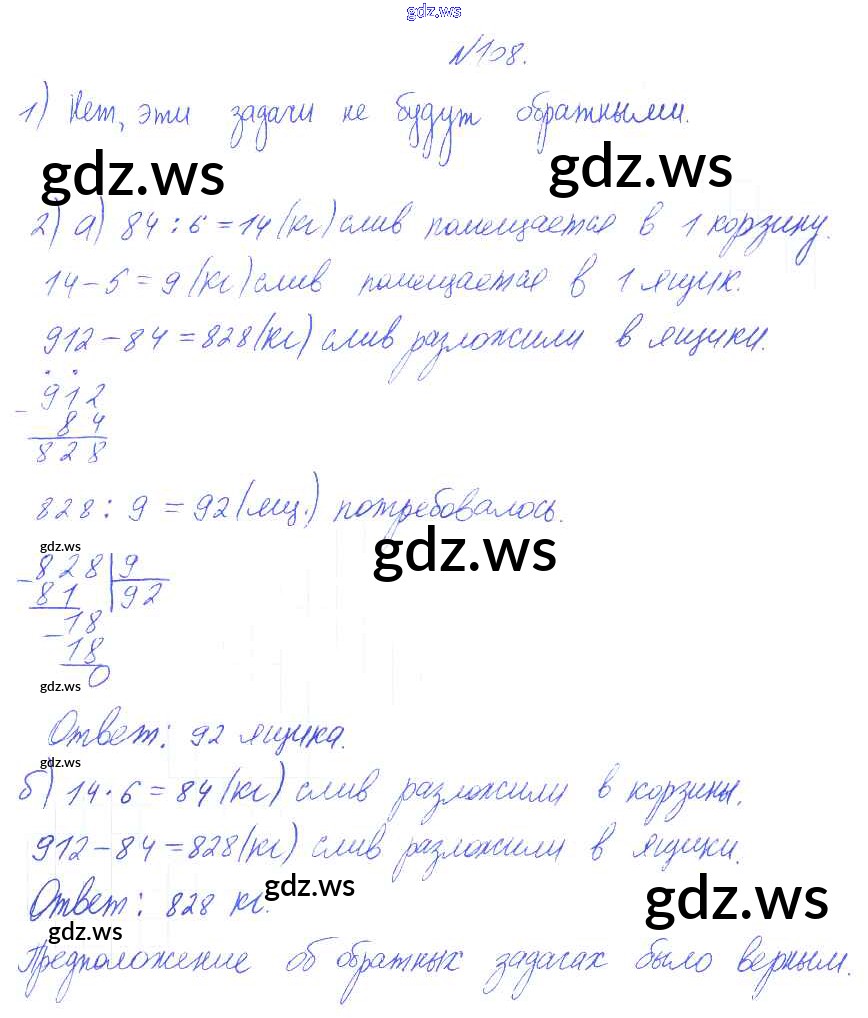 gdz.ws
№108.
1) Нет, эти задачи не будут обратными.
gdz.ws gdz.ws
2) а) 84 : 6 = 14 (кг) слив помещается в 1 корзину.
14 – 5 = 9 (кг) слив помещается в 1 ящик.
912 – 84 = 828 (кг) слив разложили в ящики.
– 912
84
828
828 : 9 = 92 (ящ.) потребовалось.
gdz.ws gdz.ws
– 828 | 9
81 | 92
– 18
18
0
gdz.ws
Ответ: 92 ящика.
gdz.ws
б) 14 · 6 = 84 (кг) слив разложили в корзины.
912 – 84 = 828 (кг) слив разложили в ящики.
gdz.ws gdz.ws
Ответ: 828 кг.
gdz.ws
Предположение об обратных задачах было верным.